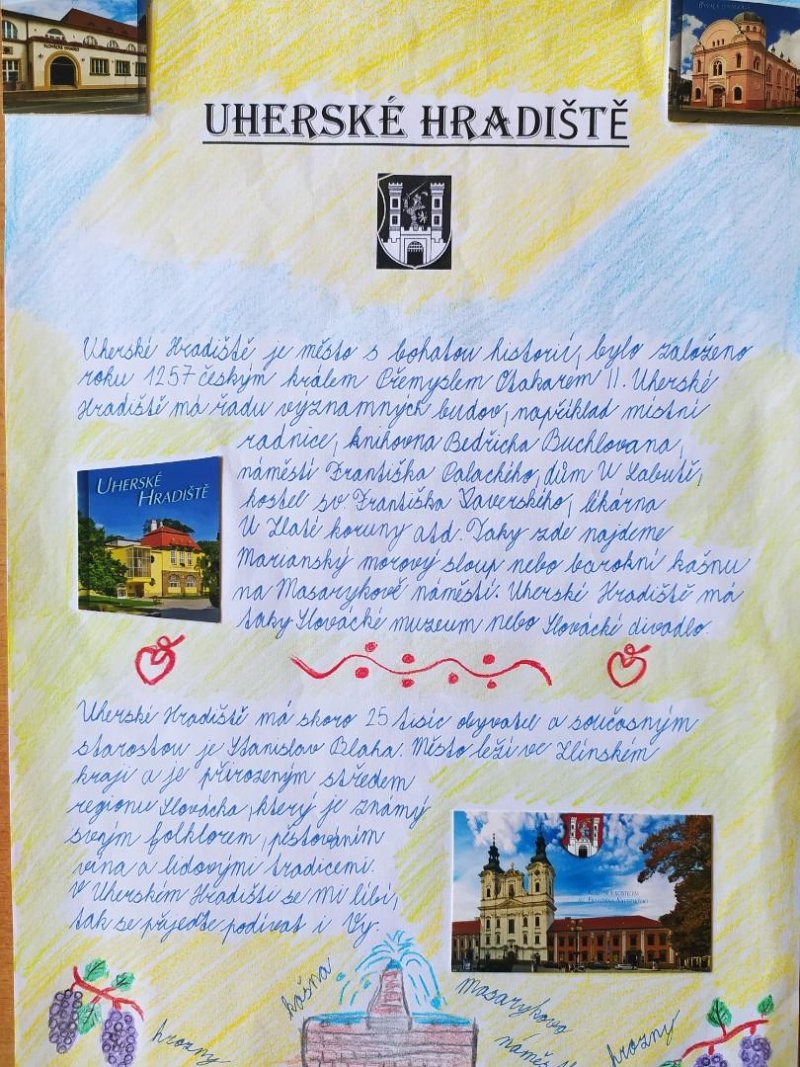 UHERSKÉ HRADIŠTĚ
Uherské Hradiště je město s bohatou historií, bylo založeno
roku 1257 českým králem Přemyslem Otakarem II. Uherské
Hradiště má řadu významných budov, například místní
radnice, knihovna Bedřicha Buchlovana,
náměstí Františka Palackého, dům U Labutí,
kostel sv. Františka Xaverského, lékárna
U Zlaté koruny atd. Taky zde najdeme
Marianský morový sloup nebo barokní kašnu
na Masarykově náměstí. Uherské Hradiště má
taky Slovácké muzeum nebo Slovácké divadlo.
UHERSKÉ
HRADIŠTĚ
Uherské Hradiště má skoro 25 tisíc obyvatel a současným
starostou je Stanislav Blaha. Město leží ve Zlínském
kraji a je přirozeným středem
regionu Slovácka, který je známý
svým folklorem, pěstováním
vína a lidovými tradicemi.
V Uherském Hradišti se mi líbí,
tak se přijeďte podívat i Vy.
kašna
Masarykovo
hrozny
hrozny